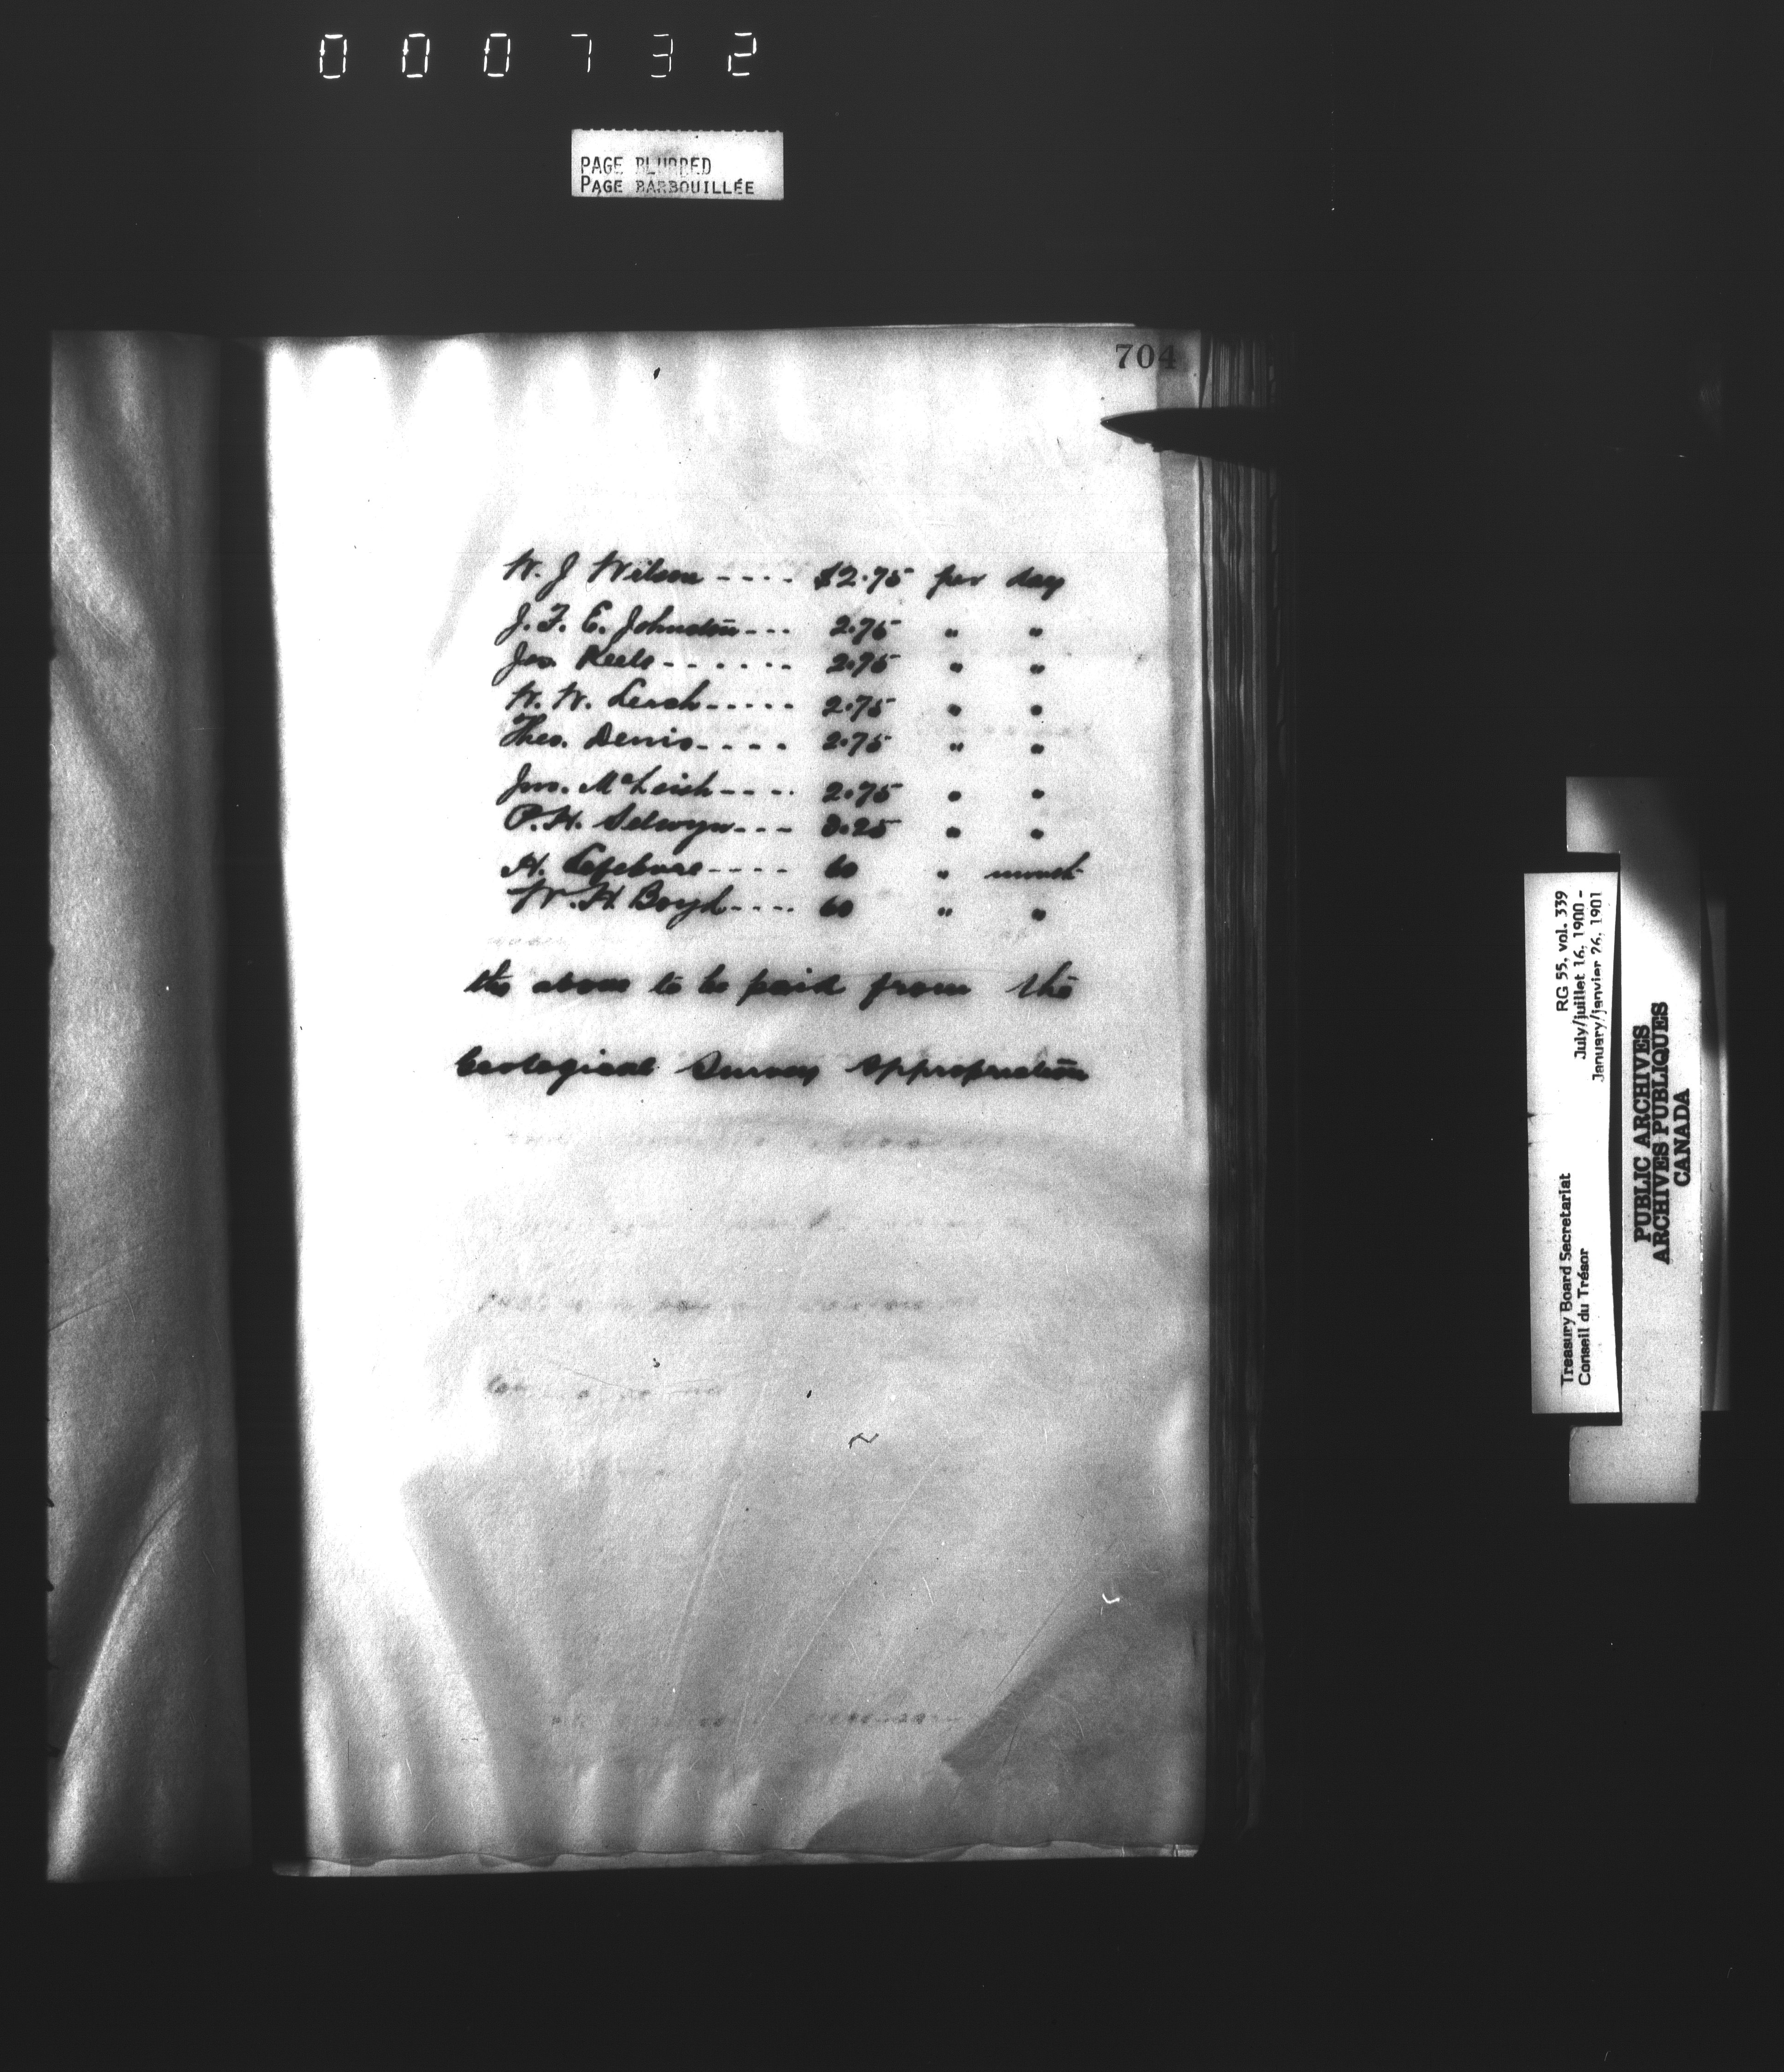 000732
PAGE BLURRED
PAGE BARBOUILLÉE
704
W. J Wilson ---- $2.75 per day
J. F. E. Johnston --- 2.75 " "
Jos. Keele ------ 2.75 " "
W. W. Leach ----- 2.75 " "
Theo. Denis ---- 2.75 " "
Jno. McLeish ---- 2.75 " "
P. H. Selwyn --- 3.25 " "
H. Lefebvre ---- 60 " month
W. H. Boyd ---- 60 " "
the above to be paid from the
Geological Survey Appropriation
Treasury Board Secretariat RG 55, vol. 339
Conseil du Trésor July/juillet 16, 1900 -
January/janvier 26, 1901
PUBLIC ARCHIVES
ARCHIVES PUBLIQUES
CANADA